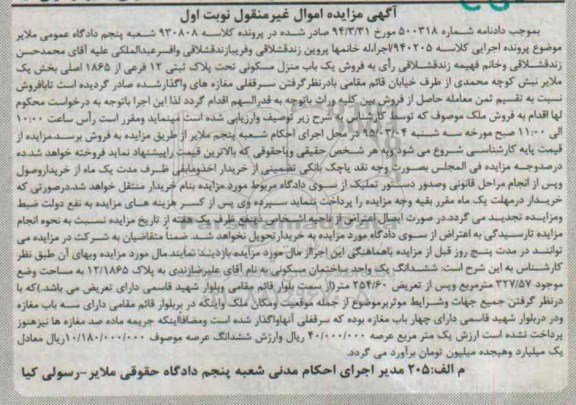 آگهی مزایده اموال غیرمنقول نوبت اول
بموجب دادنامه شماره ۵۰۰۳۱۸ مورخ ۹۴/۳/۳۱ صادر شده در پرونده کلاسه ۹۳۰۸۰۸ شعبه پنجم دادگاه عمومی ملایر
موضوع پرونده اجرایی کلاسه ۹۴۰۲۰۵/اجرا،له خانمها پروین زندقشلاقی وفریبازندقشلاقی وافسرعبدالملکی علیه آقای محمدحسن
زندقشلاقی وخانم فهیمه زندقشلاقی رأی به فروش یک باب منزل مسکونی تحت پلاک ثبتی ۱۲ فرعی از ۱۸۶۵ اصلی بخش یک
ملایر نبش کوچه محمدی از طرف خیابان قائم مقامی بادرنظرگرفتن سرقفلی مغازه های واگذارشده صادر گردیده است تابافروش
نسبت به تقسیم ثمن معامله حاصل از فروش بین کلیه وراث باتوجه به قدرالسهم اقدام گردد لذا این اجرا باتوجه به درخواست محکوم
لها اقدام به فروش ملک موصوف که توسط کارشناس به شرح زیر توصیف وارزیابی شده است مینماید ومقرر است رأس ساعت ۱۰:۰۰
الی ۱۱:۰۰ صبح مورخه سه شنبه ۹۵/۰۳/۰۴ در محل اجرای احکام شعبه پنجم ملایر از طریق مزایده به فروش برسد.مزایده از
قیمت پایه کارشناسی شروع می شود وبه هر شخص حقیقی ویاحقوقی که بالاترین قیمت راپیشنهاد نماید فروخته خواهد شد.ده
درصدوجه مزایده فی المجلس بصورت وجه نقد یاچک بانکی تضمینی از خریدار اخذومابقی ظرف مدت یک ماه از خریداروصول
وپس از انجام مراحل قانونی وصدور دستور تملیک از سوی دادگاه مربوط مورد مزایده بنام خریدار منتقل خواهد شد.درصورتی که
خریدار درمهلت یک ماه مقرر بقیه وجه مزایده را پرداخت ننماید سپرده وی پس از کسر هزینه های مزایده به نفع دولت ضبط
ومزایده تجدید می گردد.در صورت ایصال اعتراض از ناحیه اشخاص ذینفع ظرف یک هفته از تاریخ مزایده نسبت به نحوه انجام
مزایده تارسیدگی به اعتراض از سوی دادگاه مورد مزایده به خریدارتحویل نخواهد شد. ضمناً متقاضیان به شرکت در مزایده می
توانند در مدت پنج روز قبل از مزایده باهماهنگی این اجرااز مال مورد مزایده بازدید نمایند.مال مورد مزایده وبهای آن طبق نظر
کارشناس به این شرح است: ششدانگ یک واحد ساختمان مسکونی به نام آقای علیرضازندی به پلاک ۱۲/۱۸۶۵ به مساحت وضع
موجود ۳۲۷/۵۷ مترمربع وپس از تعریض ۲۵۴/۶۰ متر(از سمت بلوار قائم مقامی وبلوار شهید قاسمی دارای تعریض می باشد.)که با
درنظر گرفتن جمیع جهات وشرایط موثربرموضوع از جمله موقعیت ومکان ملک واینکه در بربلوار قائم مقامی دارای سه باب مغازه
ودر دربلوار شهید قاسمی دارای چهار باب مغازه بوده که سرقفلی آنهاواگذار شده است ومضافاًاینکه جریمه ماده صد مغازه ها نیزهنوز
پرداخت نشده است ارزش یک متر مربع عرصه ۴۰/۰۰۰/۰۰۰ ریال وارزش ششدانگ عرصه موصوف ۱۰/۱۸۰/۰۰۰/۰۰۰ریال معادل
یک میلیارد وهیجده میلیون تومان برآورد می گردد.
م الف:۲۰۵ مدیر اجرای احکام مدنی شعبه پنجم دادگاه حقوقی ملایر-رسولی کیا